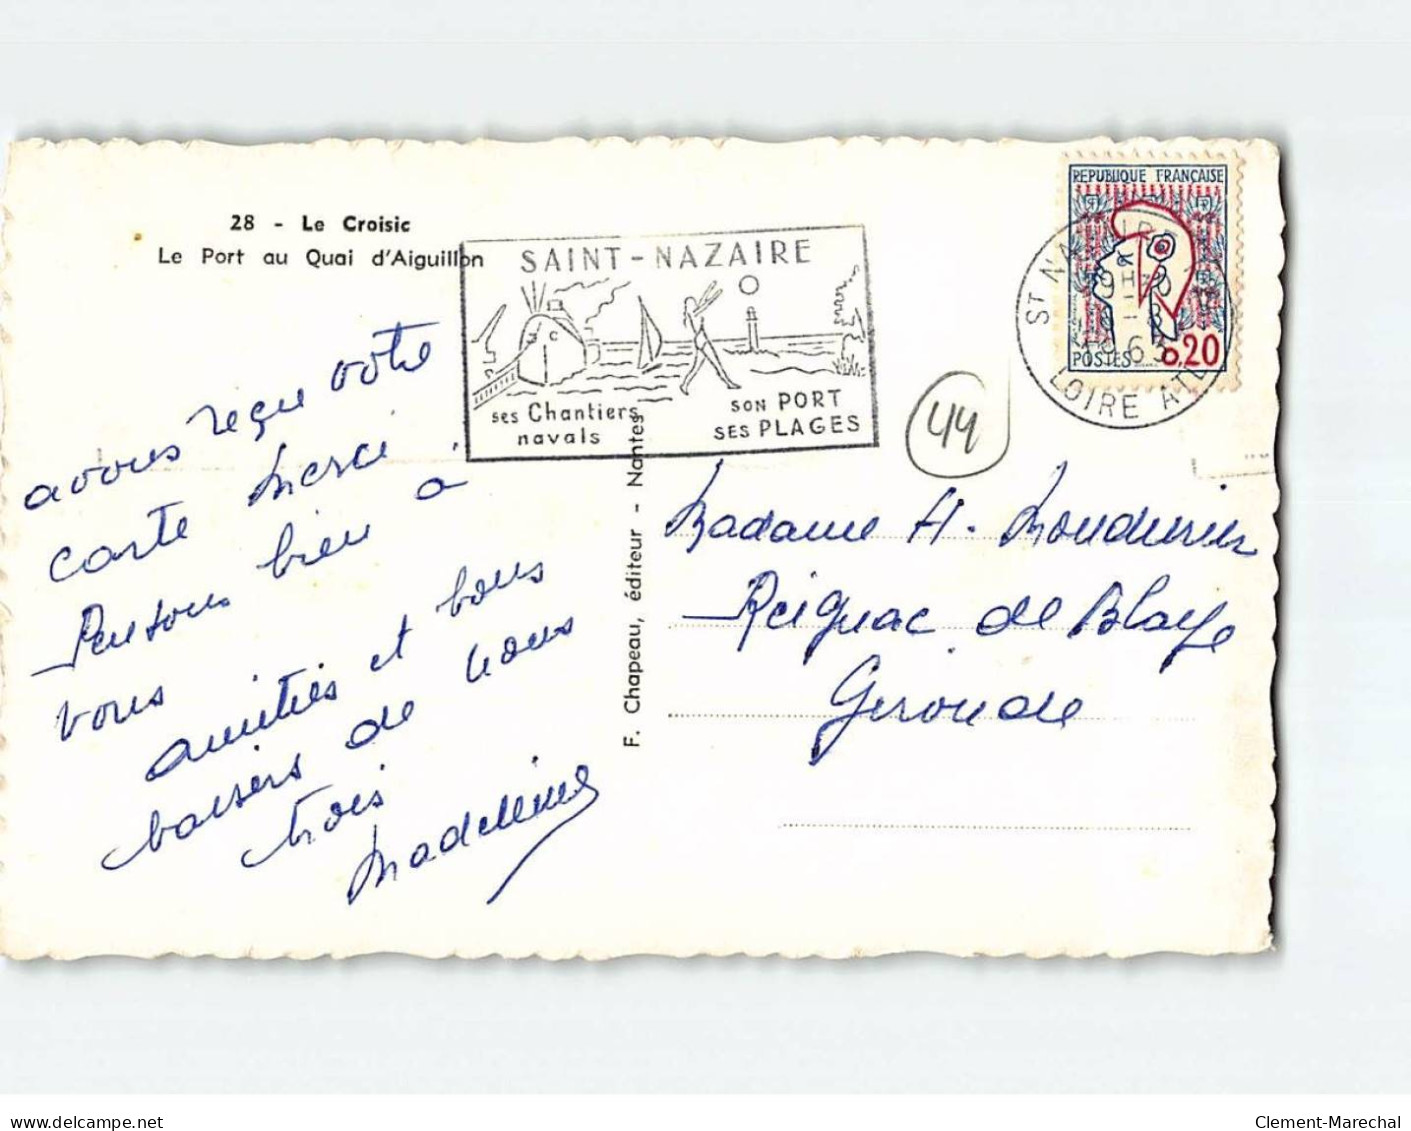 28 - Le Croisic
Le Port au Quai d'Aiguillon
SAINT-NAZAIRE
ses Chantiers
navals
SON PORT
SES PLAGES
REPUBLIQUE FRANÇAISE
POSTES
0,20
ST NAZAIRE
63
LOIRE ATL
44
avons reçu votre
carte merci.
Pensons bien à
vous
amitiés et bons
baisers de nous
trois
Madeleine
F. Chapeau, éditeur - Nantes
Madame H.
Reignac de Blaye
Gironde
www.delcampe.net
Clement-Marechal